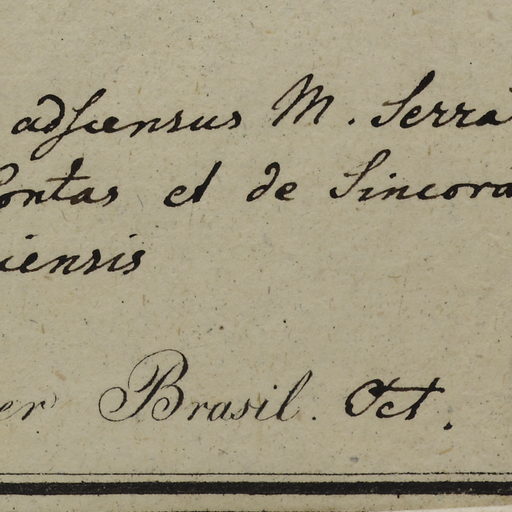 adscensus M. Serra
Contas et de Sincora
iensis
er Brasil. Oct.